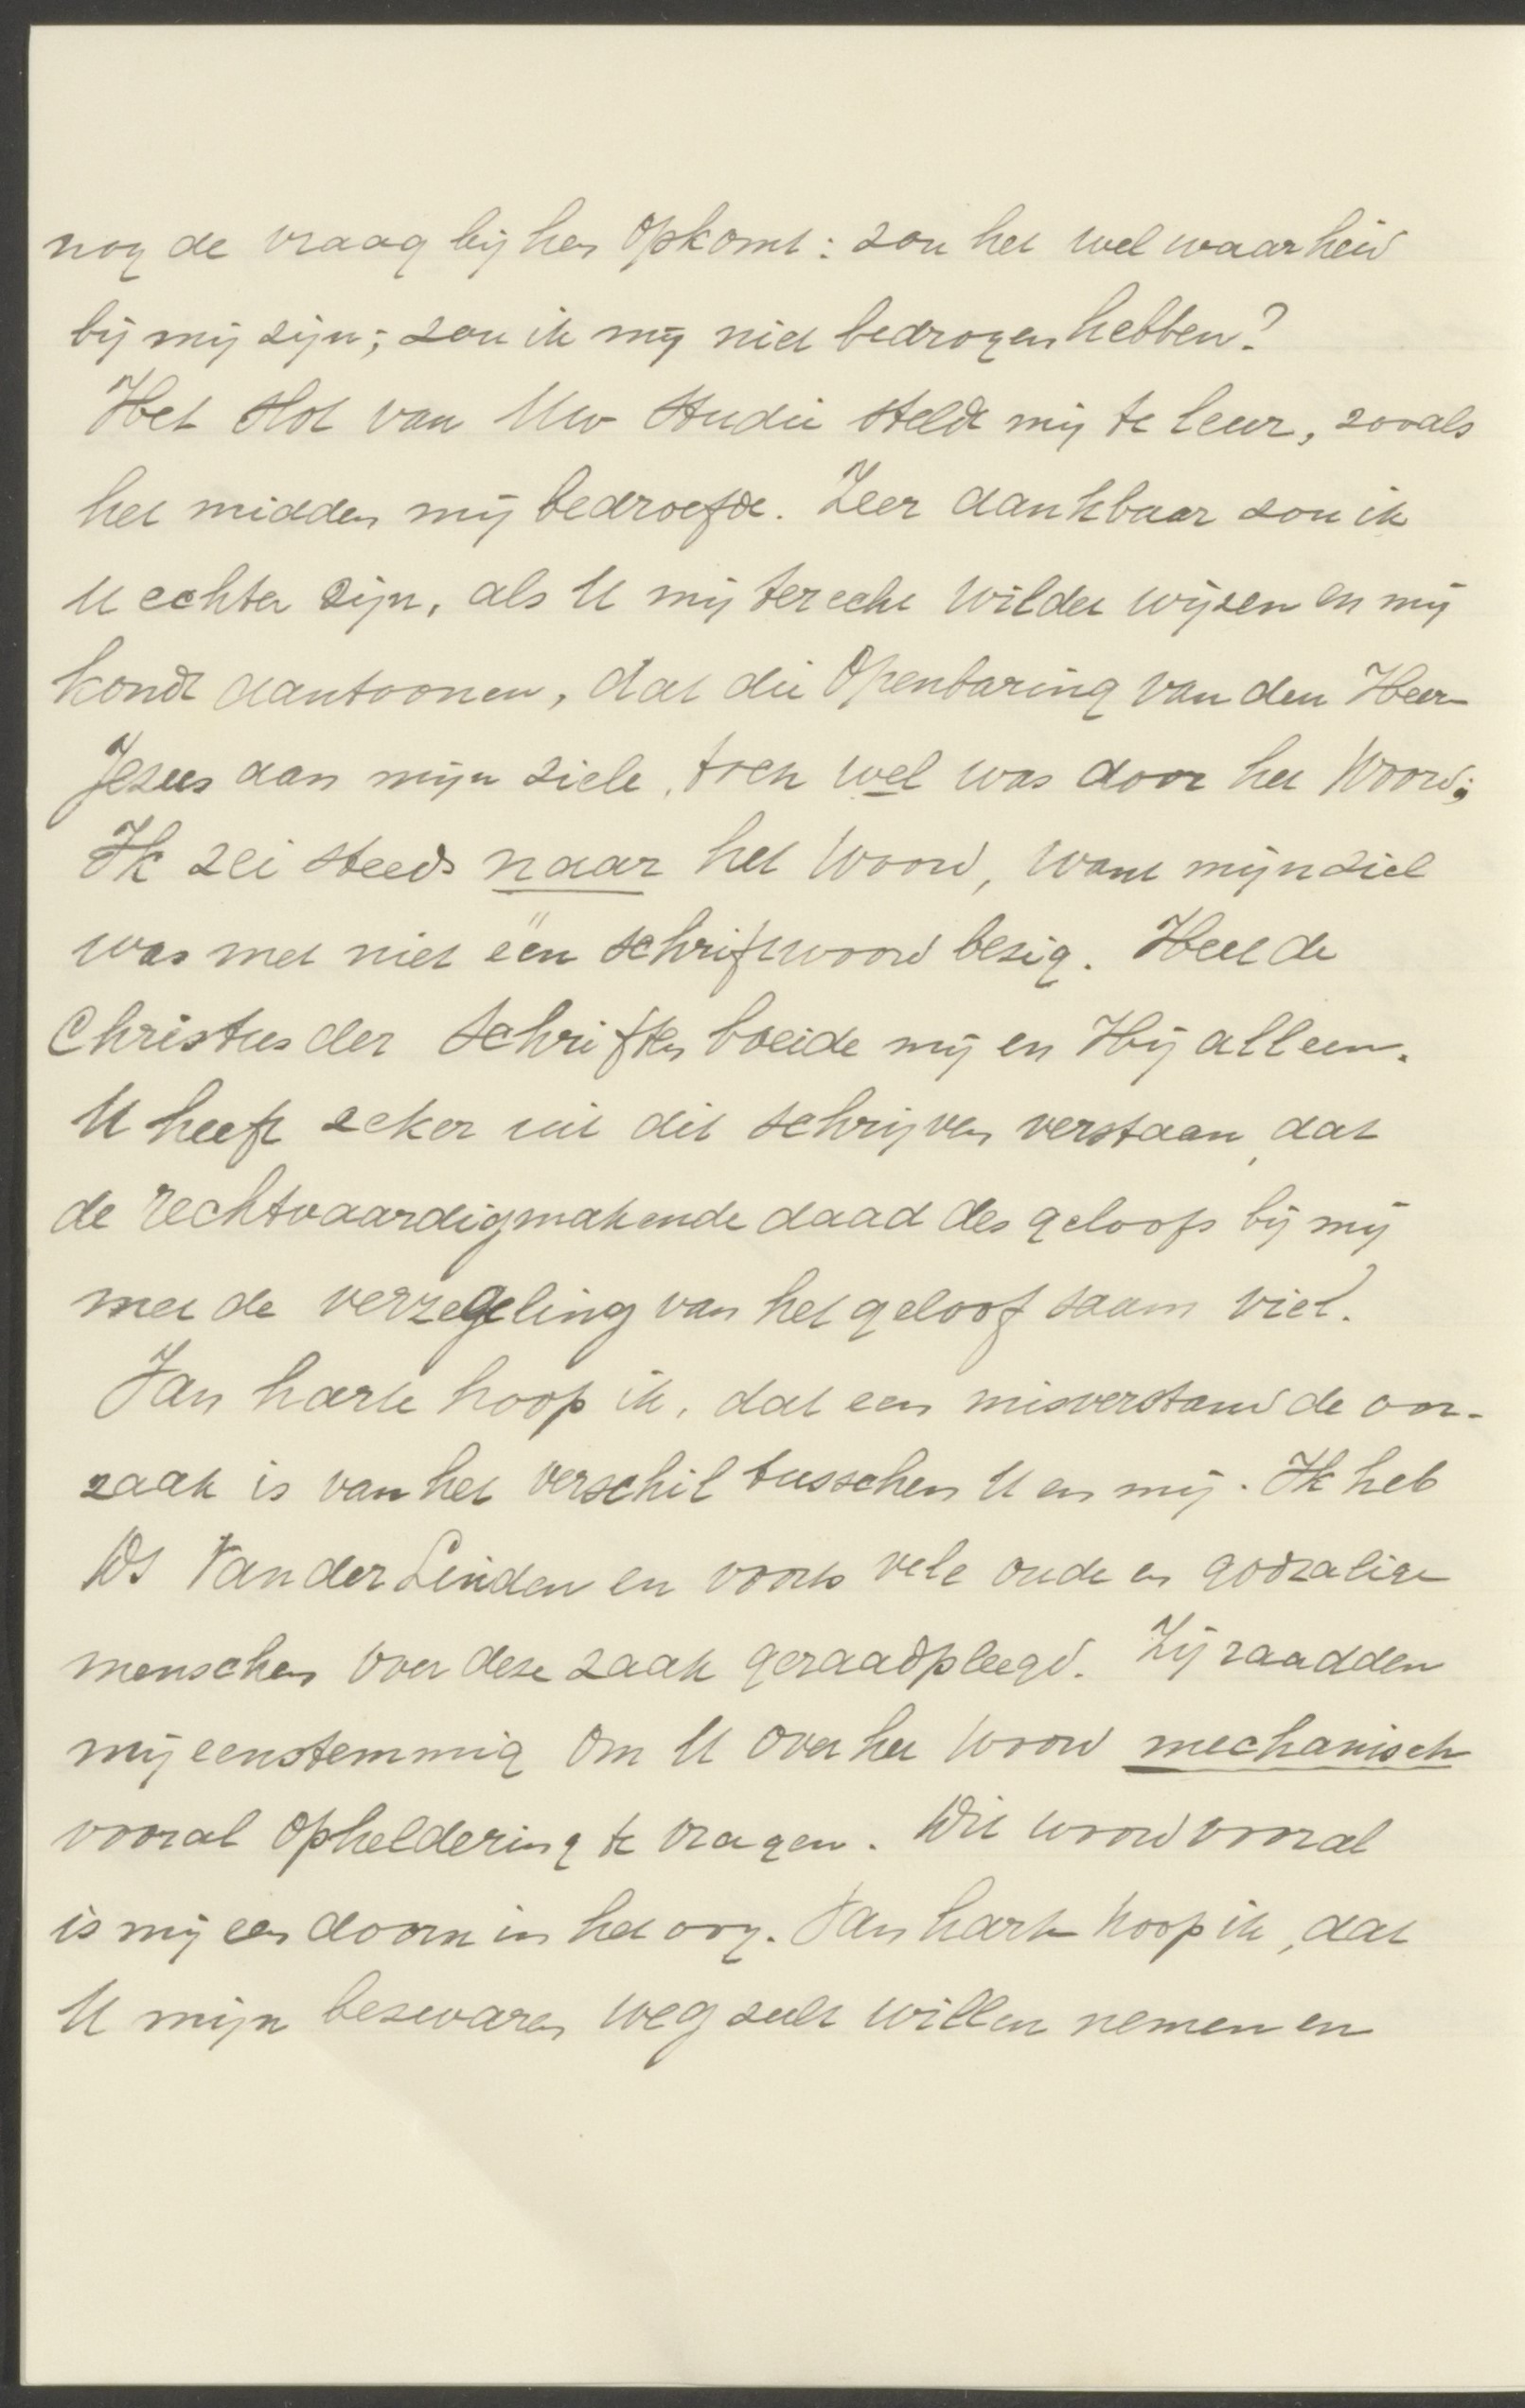 nog de vraag bij hen opkomt: zou het wel waarheid
bij mij zijn; zou ik mij niet bedrogen hebben?
Het slot van Uw studie stelde mij te leur, zooals
het midden mij bedroefde. Zeer dankbaar zou ik
U echter zijn, als U mij terecht wildet wijzen en mij
kondt aantoonen, dat die Openbaring van den Heer
Jezus aan mijn ziele, toch wel was door het Woord;
Ik zei steeds naar het Woord, want mijn ziel
was met niet één schriftwoord bezig. Heel de
Christus der Schriften boeide mij en Hij alleen.
U heeft zeker uit dit schrijven verstaan, dat
de rechtvaardigmakende daad des geloofs bij mij
met de verzegeling van het geloof saam viel.
Van harte hoop ik, dat een misverstand de oor-
zaak is van het verschil tusschen U en mij. Ik heb
Ds Van der Linden en voorts vele oude en godzalige
menschen over deze zaak geraadpleegd. Zij raadden
mij eenstemmig om U over het woord mechanisch
vooral opheldering te vragen. Dit woord vooral
is mij een doorn in het oog. Van harte hoop ik, dat
U mijn bezwaren weg zult willen nemen en